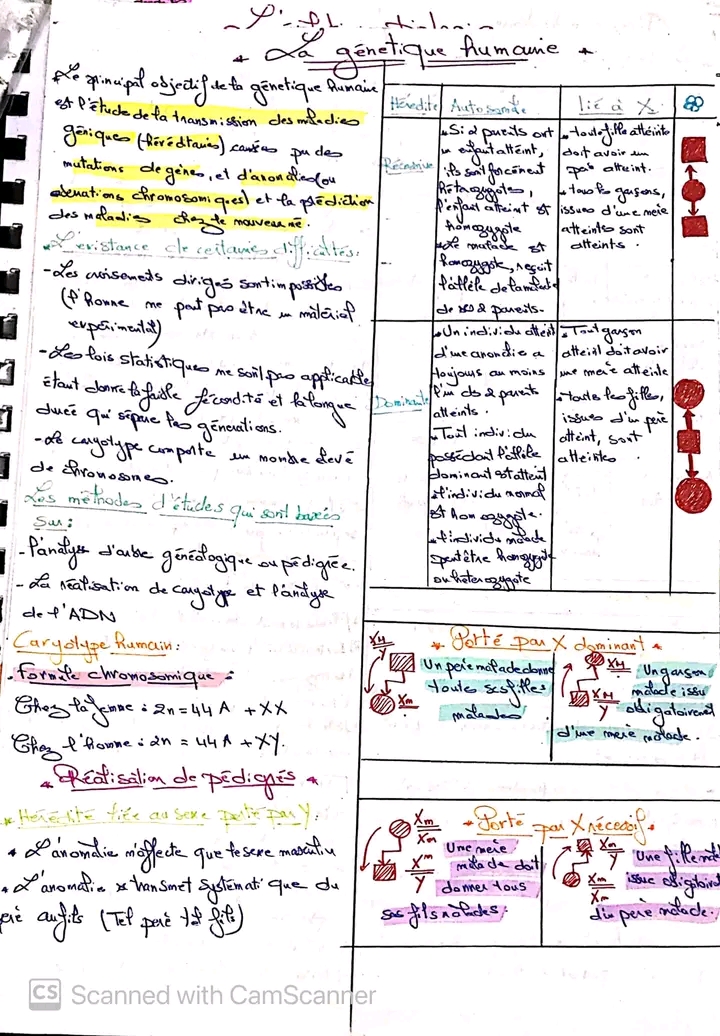 La génétique humaine
Le principal objectif de la génétique humaine
est l'étude de la transmission des maladies
géniques (héréditaires) causées par des
mutations de gènes, et d'anomalies (ou
aberrations chromosomiques) et la prédiction
des maladies chez le nouveau né.
L'existance de certaines difficultés:
- Les croisements dirigés sont impossibles
(l'homme ne peut pas être un matériel
expérimental)
- Les lois statistiques ne sont pas applicables
étant donné la faible fécondité et la longue
durée qui sépare les générations.
- Le caryotype comporte un nombre élevé
de chromosomes.
Les méthodes d'études qui sont basées
sur:
- l'analyse d'arbre généalogique ou pédigrée.
- La réalisation de caryotype et l'analyse
de l'ADN
Caryotype humain:
- formule chromosomique:
Chez la femme: 2n = 44 A + XX
Chez l'homme: 2n = 44 A + XY.
Réalisation de pédigrés
Hérédité liée au sexe porté par Y:
L'anomalie n'affecte que le sexe masculin
L'anomalie se transmet systématique du
père au fils (Tel père tel fils)
Hérédité
Autosomale
lié à X
Récessive
Si 2 parents ont
un enfant atteint,
ils sont forcément
hétérozygotes,
l'enfant atteint est
homozygote
Le malade est
homozygote, reçoit
l'allèle de
de ses 2 parents.
toute fille atteinte
doit avoir un
père atteint.
tous les garçons,
issues d'une mère
atteinte sont
atteints.
Dominante
Un individu atteint
d'une anomalie a
toujours au moins
l'un des 2 parents
atteints.
Tout individu
possédant l'allèle
dominant est atteint
l'individu normal
est homozygote.
l'individu malade
peut être homozygote
ou hétérozygote
Tout garçon
atteint doit avoir
une mère atteinte
toutes les filles,
issues d'un père
atteint, sont
atteintes
Porté par X dominant
XM
Y
Xm
Un père malade donne
toutes ses filles
malades
XM
XM
Y
Un garçon
malade issu
obligatoirement
d'une mère malade.
Porté par X récessif
Xm
Xm
Xm
Y
Une mère
malade doit
donner tous
ses fils malades.
Xm
Y
Xm
Xm
Une fille
issue
d'un père malade.
CS Scanned with CamScanner